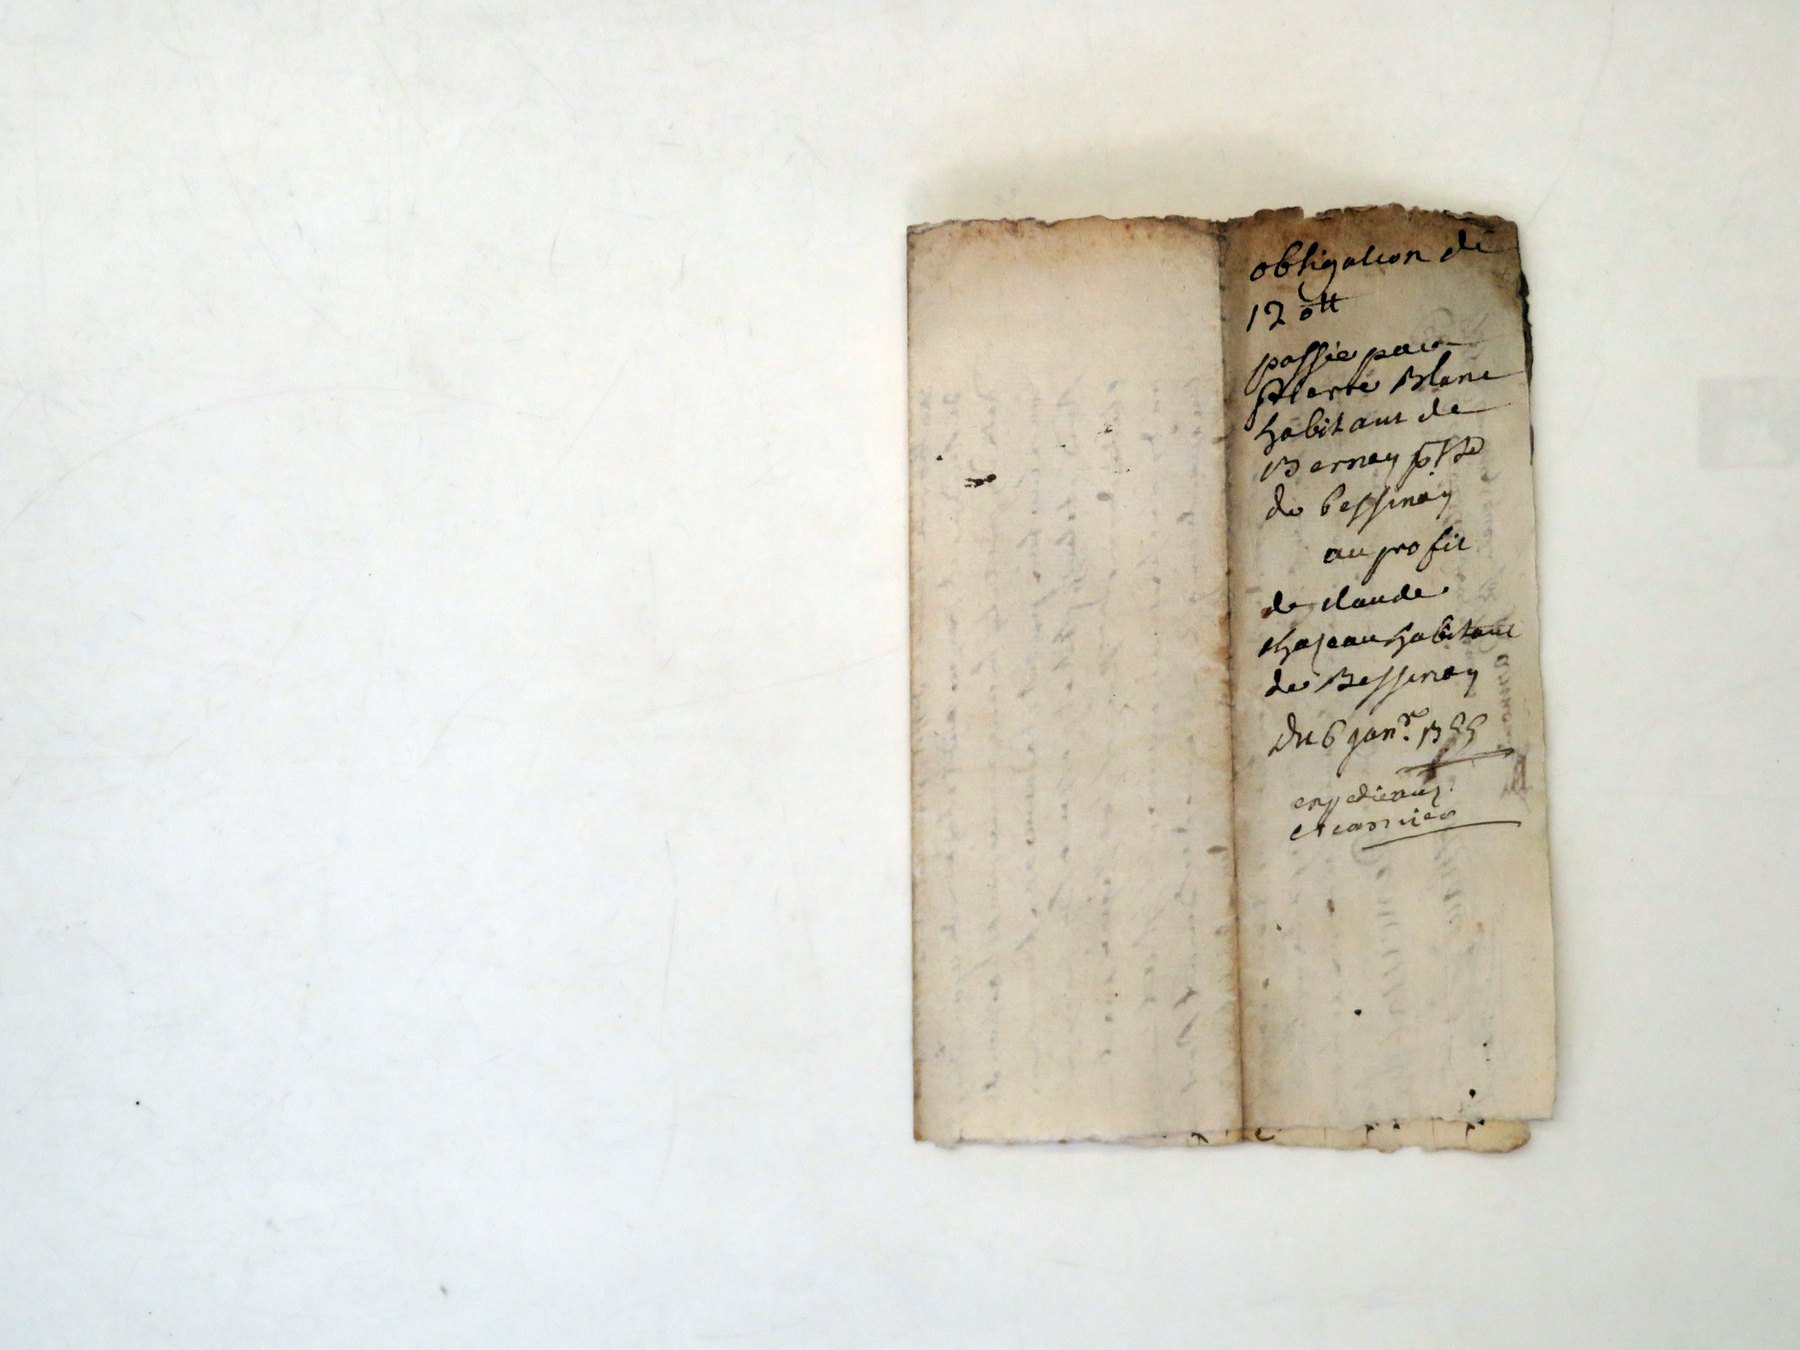 obligation de
120tt
passée par
pierre Blanc
habitant de
Bernay psse
de bessenay
au profit
de claude
chazeau habitant
de Bessenay
Du 6 janr. 1755